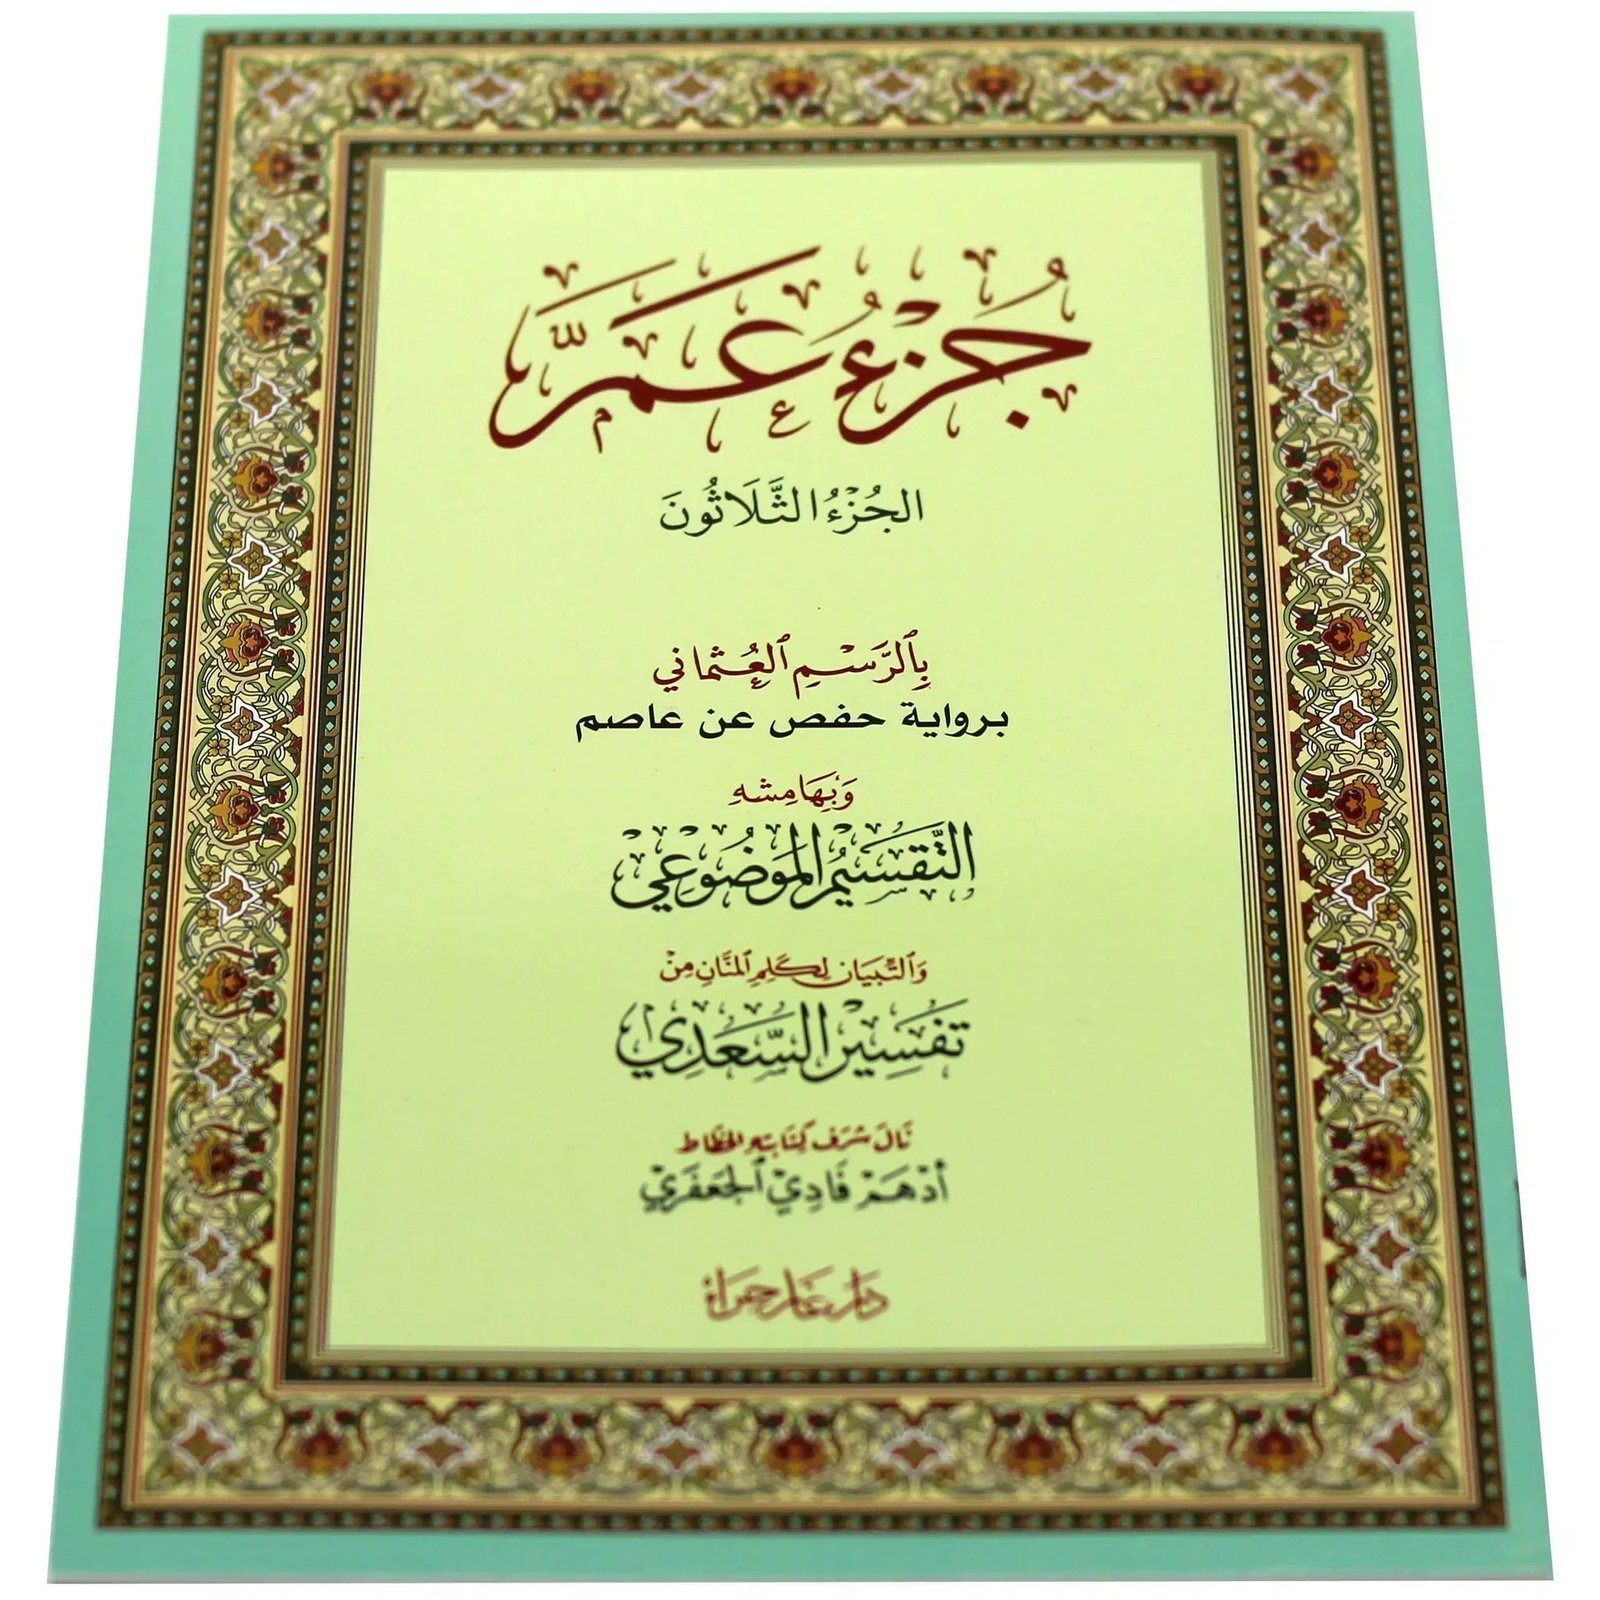 جُزْءُ عَمَّ
الجُزْءُ الثَّلَاثُونَ
بِالرَّسْمِ العُثْمَانِي
برواية حفص عن عاصم
وَبِهَامِشِهِ
التَّقْسِيمُ المَوْضُوعِي
وَالتِّبْيَان لِكَلِمِ المَنَّانِ مِنْ
تَفْسِيرِ السَّعْدِي
نَالَ شَرَفَ كِتَابَتِهِ الخَطَّاط
أَدْهَمْ فَادِيْ الجَعْفَرِيْ
دَار غَار حِرَاء